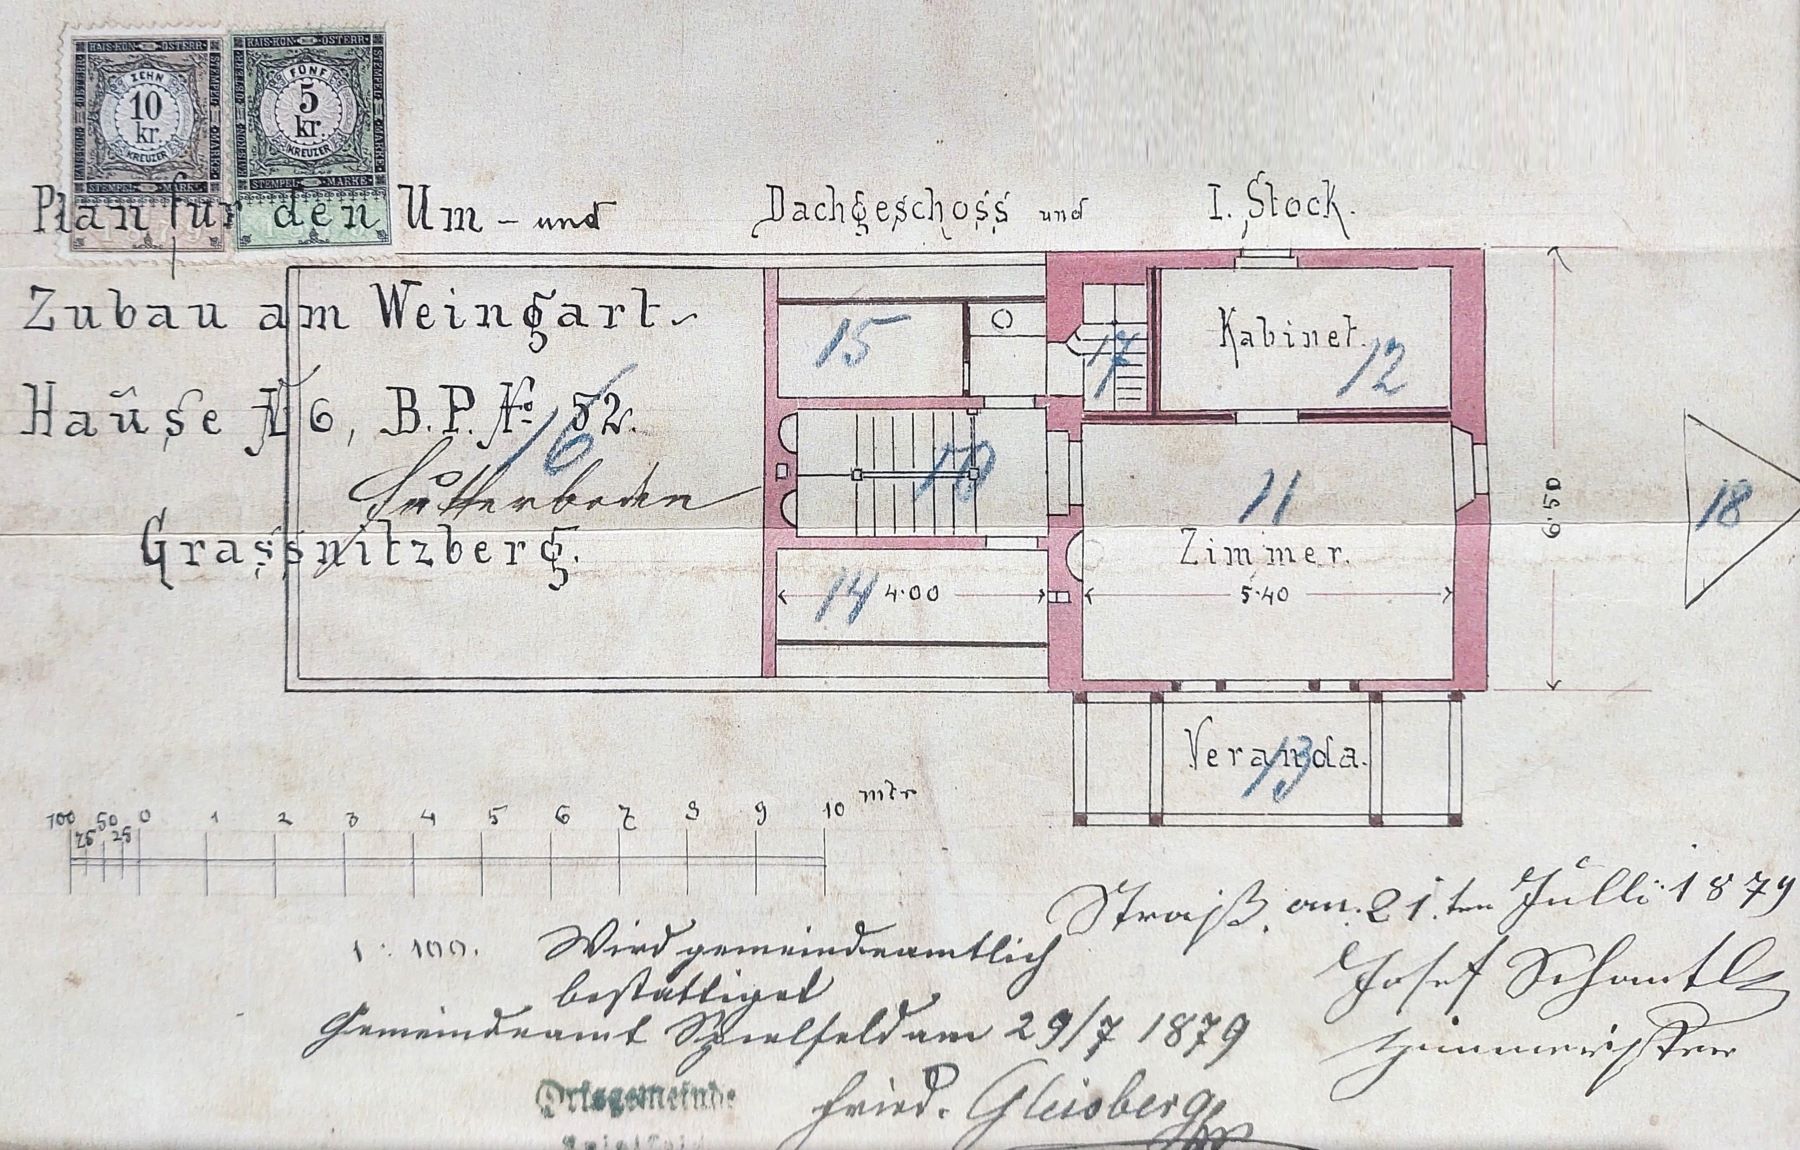 KAIS·KÖN· ·ÖSTERR·
ZEHN
10
kr.
KREUZER
STEMPEL MARKE
KAIS·KÖN· ·ÖSTERR·
FÜNF
5
kr.
KREUZER
STEMPEL MARKE
Plan für den Um- und
Zubau am Weingart-
Hause № 6, B.P. № 52.
Grassnitzberg.
Dachgeschoss und I. Stock.
15
17
Kabinet.
12
16
Futterboden
10
11
Zimmer.
14
4·00
5·40
6·50
18
Veranda.
13
100 75 50 25 0 1 2 3 4 5 6 7 8 9 10 mtr
1 : 100.
Straß, am 21.ten Julli 1879
Josef Schantl
Zimmermeister
Wird gemeindeamtlich
bestättiget
Gemeindeamt Spielfeld am 29/7 1879
Ortsgemeinde
Spielfeld
Fried. Gleisberg